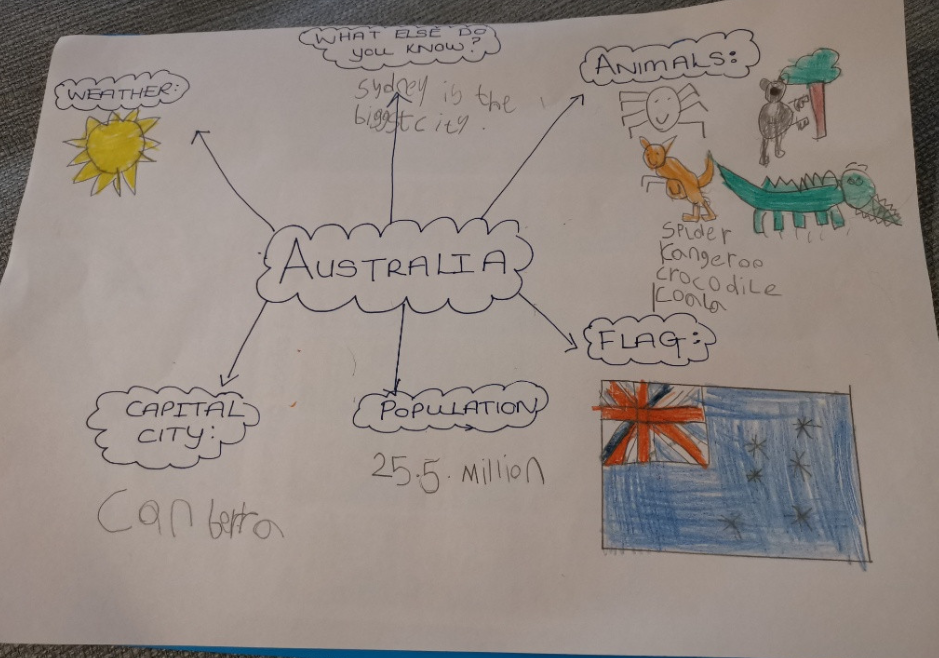 WHAT ELSE DO
YOU KNOW?
Sydney is the
biggst city.
WEATHER:
ANIMALS:
spider
Kangeroo
crocodile
Koala
AUSTRALIA
FLAG:
CAPITAL
CITY:
Canberra
POPULATION
25.5. Million